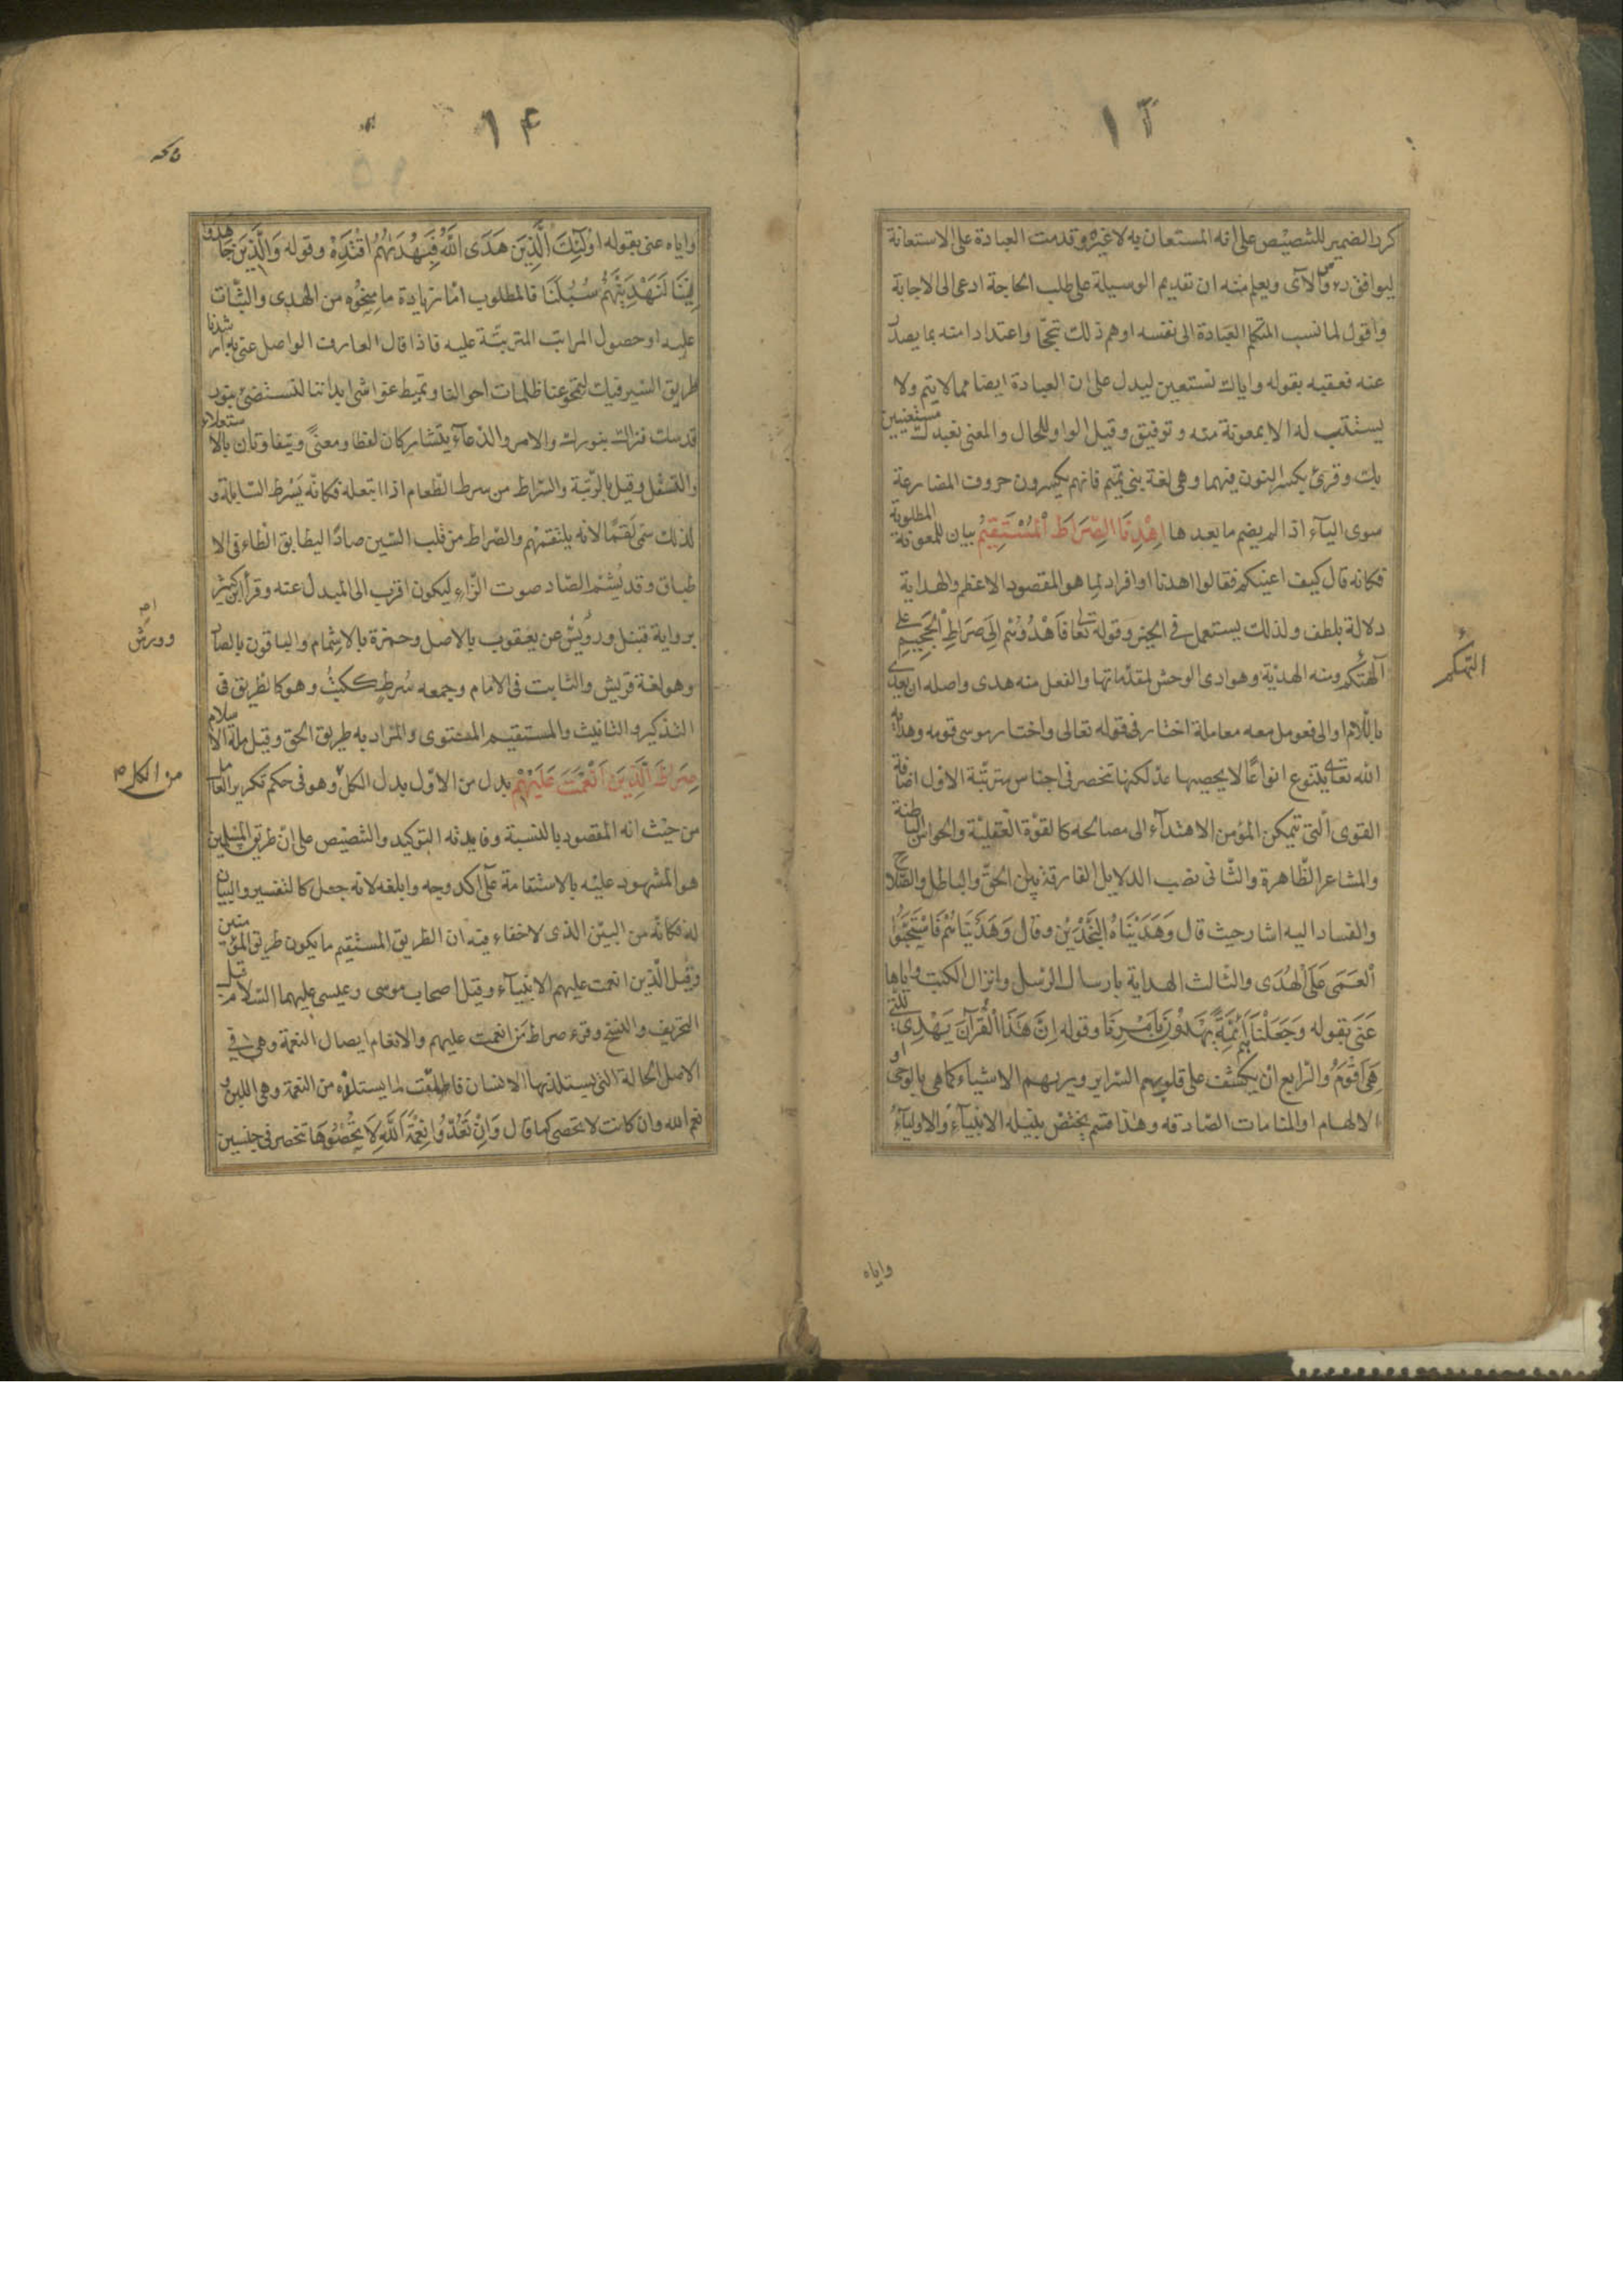 ١٣
كرر الضمير للتنصيص على انه المستعان به لا غيره وقدمت العبادة على الاستعانة
ليوافق رؤس الآى ويعلم منه ان تقديم الوسيلة على طلب الحاجة ادعى الى الاجابة
واقول لما نسب المتكلم العبادة الى نفسه اوهم ذلك تبجحا واعتدادا منه بما يصدر
عنه فعقبه بقوله واياك نستعين ليدل على ان العبادة ايضا مما لا يتم ولا
يستتب له الا بمعونة منه وتوفيق وقيل الواو للحال والمعنى نعبدك مستعينين
بك وقرئ بكسر النون فيهما وهى لغة بنى تميم فانهم يكسرون حروف المضارعة
سوى الياء اذا لم يضم ما بعدها اِهْدِنَا الصِّرَاطَ الْمُسْتَقِيمَ بيان للمعونة المطلوبة
فكانه قال كيف اعينكم فقالوا اهدنا او افراد لما هو المقصود الاعظم والهداية
دلالة بلطف ولذلك يستعمل فى الخير وقوله تعا فَاهْدُوهُمْ اِلَى صِرَاطِ الْجَحِيمِ على
التهكم ومنه الهدية وهوادى الوحش لمقدماتها والفعل منه هدى واصله ان يعدى
باللام او الى فعومل معه معاملة اختار فى قوله تعالى واختار موسى قومه وهداية
الله تعالى يتنوع انواعًا لا يحصيها عد لكنها تنحصر فى اجناس مترتبة الاول افاضة
القوى التى تمكن المؤمن الاهتدآء الى مصالحه كالقوة العقلية والحواس الباطنة
والمشاعر الظاهرة والثانى نصب الدلايل الفارقة بين الحق والباطل والصلاح
والفساد اليه اشار حيث قال وَهَدَيْنَاهُ النَّجْدَيْنِ وقال وَهَدَيْنَاهُمْ فَاسْتَحَبُّوا
الْعَمَى عَلَى الْهُدَى والثالث الهداية بارسال الرسل وانزال الكتب واياها
عَنَى بقوله وَجَعَلْنَاهُمْ اَئِمَّةً يَهْدُونَ بِاَمْرِنَا وقوله اِنَّ هَذَا الْقُرْآنَ يَهْدِى لِلَّتِى
هِىَ اَقْوَمُ والرابع ان يكشف على قلوبهم السراير ويريهم الاشياء كما هى بالوحى او
الالهام او المنامات الصادقه وهذا قسم يختص بنيله الانبيآء والاوليآء
التهكم
واياه
١۴
واياه عنى بقوله اُولَئِكَ الَّذِينَ هَدَى اللَّهُ فَبِهُدَيهُمُ اقْتَدِهْ وقوله وَالَّذِينَ جَاهَدُوا
فِينَا لَنَهْدِيَنَّهُمْ سُبُلَنَا فالمطلوب اما زيادة ما منحوه من الهدى والثبات
عليه او حصول المراتب المترتبة عليه فاذا قال العارف الواصل عنى به ارشدنا
طريق السير فيك لتمحو عنا ظلمات احوالنا وتميط غواشى ابداننا لنستضئ بنور
قدسك فنراك بنورك والامر والدعآء يتشاركان لفظا ومعنًى ويتفاوتان بالاستعلاء
والتسفل وقيل بالرتبة والسراط من سرط الطعام اذا ابتعله فكانه يَسْرط السابلة و
لذلك سمى لَقَمًا لانه يلتقمهم والصراط من قلب السين صادًا ليطابق الطاء فى الا
طباق وقد يُشم الصاد صوت الزاء ليكون اقرب الى المبدل عنه وقرأ ابن كثير
برواية قنبل ورويس عن يعقوب بالاصل وحمزة بالاشمام والباقون بالصاد
وهو لغة قريش والثابت فى الامام وجمعه سُرط ككتب وهو كالطريق فى
التذكير والتانيث والمستقيم المستوى والمراد به طريق الحق وقيل ملة الاسلام
صِرَاطَ الَّذِينَ اَنْعَمْتَ عَلَيْهِمْ بدل من الاول بدل الكل وهو فى حكم تكرير العامل
من حيث انه المقصود بالنسبة وفايدته التوكيد والتنصيص على ان طريق المسلمين
هو المشهود عليه بالاستقامة على آكد وجه وابلغه لانه جعل كالتفسير والبيان
له فكانه من البين الذى لا خفاء فيه ان الطريق المستقيم ما يكون طريق المؤمنين
وقيل الذين انعمت عليهم الانبيآء وقيل اصحاب موسى وعيسى عليهما السلام قبل
التحريف والنسخ وقرء صراط مَن انعمت عليهم والانعام ايصال النعمة وهى فى
الاصل الحالة التى يستلذها الانسان فاطلقت لما يستلذه من النعمة وهى اللين و
نعم الله وان كانت لا تحصى كما قال وَاِنْ تَعُدُّوا نِعْمَةَ اللَّهِ لَا تُحْصُوهَا تنحصر فى جنسين
من الكل